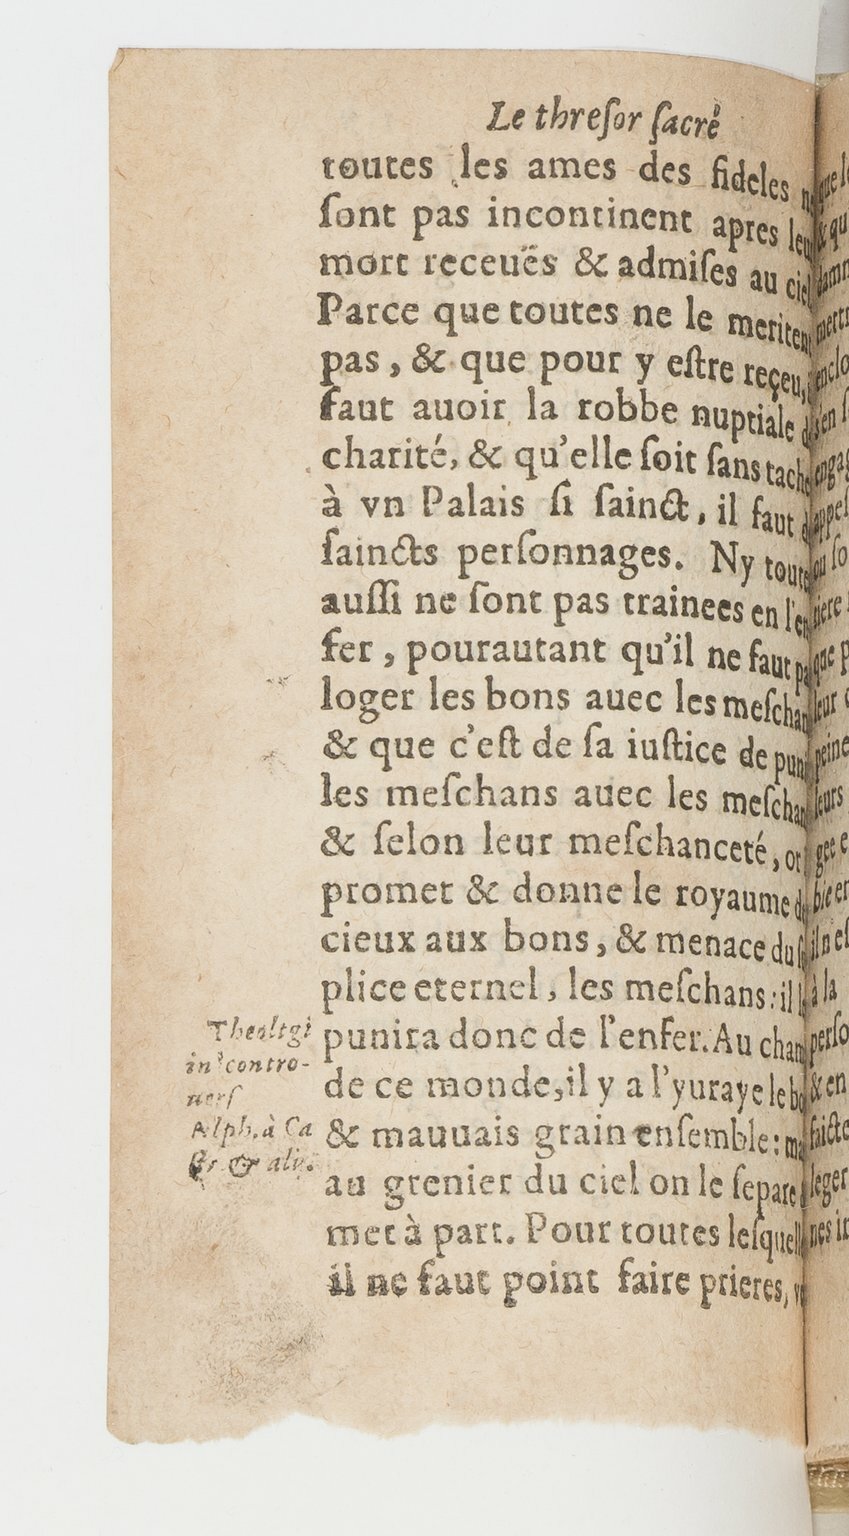 Le thresor sacré
toutes les ames des fideles
sont pas incontinent apres
mort receuës & admises au
Parce que toutes ne le
pas, & que pour y estre reçeu,
faut auoir la robbe nuptiale
charité, & qu'elle soit sans
à vn Palais si sainct, il faut
saincts personnages. Ny
aussi ne sont pas trainees en
fer, pourautant qu'il ne faut
loger les bons auec les
& que c'est de sa iustice de
les meschans auec les
& selon leur meschanceté, or
promet & donne le royaume
cieux aux bons, & menace du
plice eternel, les meschans: il
punira donc de l'enfer. Au
de ce monde, il y a l'yuraye le
& mauuais grain ensemble:
au grenier du ciel on le separe
met à part. Pour toutes
il ne faut point faire prieres,
in contro-
uers
Alph. à Ca